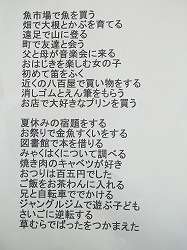 魚市場で魚を買う
畑で大根とかぶを育てる
遠足で山に登る
町で友達と会う
父と母が音楽会に来る
おはじきを楽しむ女の子
初めて笛をふく
近くの八百屋で買い物をする
消しゴムとえん筆をもらう
お店で大好きなプリンを買う
夏休みの宿題をする
お祭りで金魚すくいをする
図書館で本を借りる
みゃくはくについて調べる
焼き肉のキャベツが好き
おつりは百五円でした
ご飯をお茶わんに入れる
兄と自転車ででかける
ジャングルジムで遊ぶ子ども
さいごに逆転する
草むらでばったをつかまえた